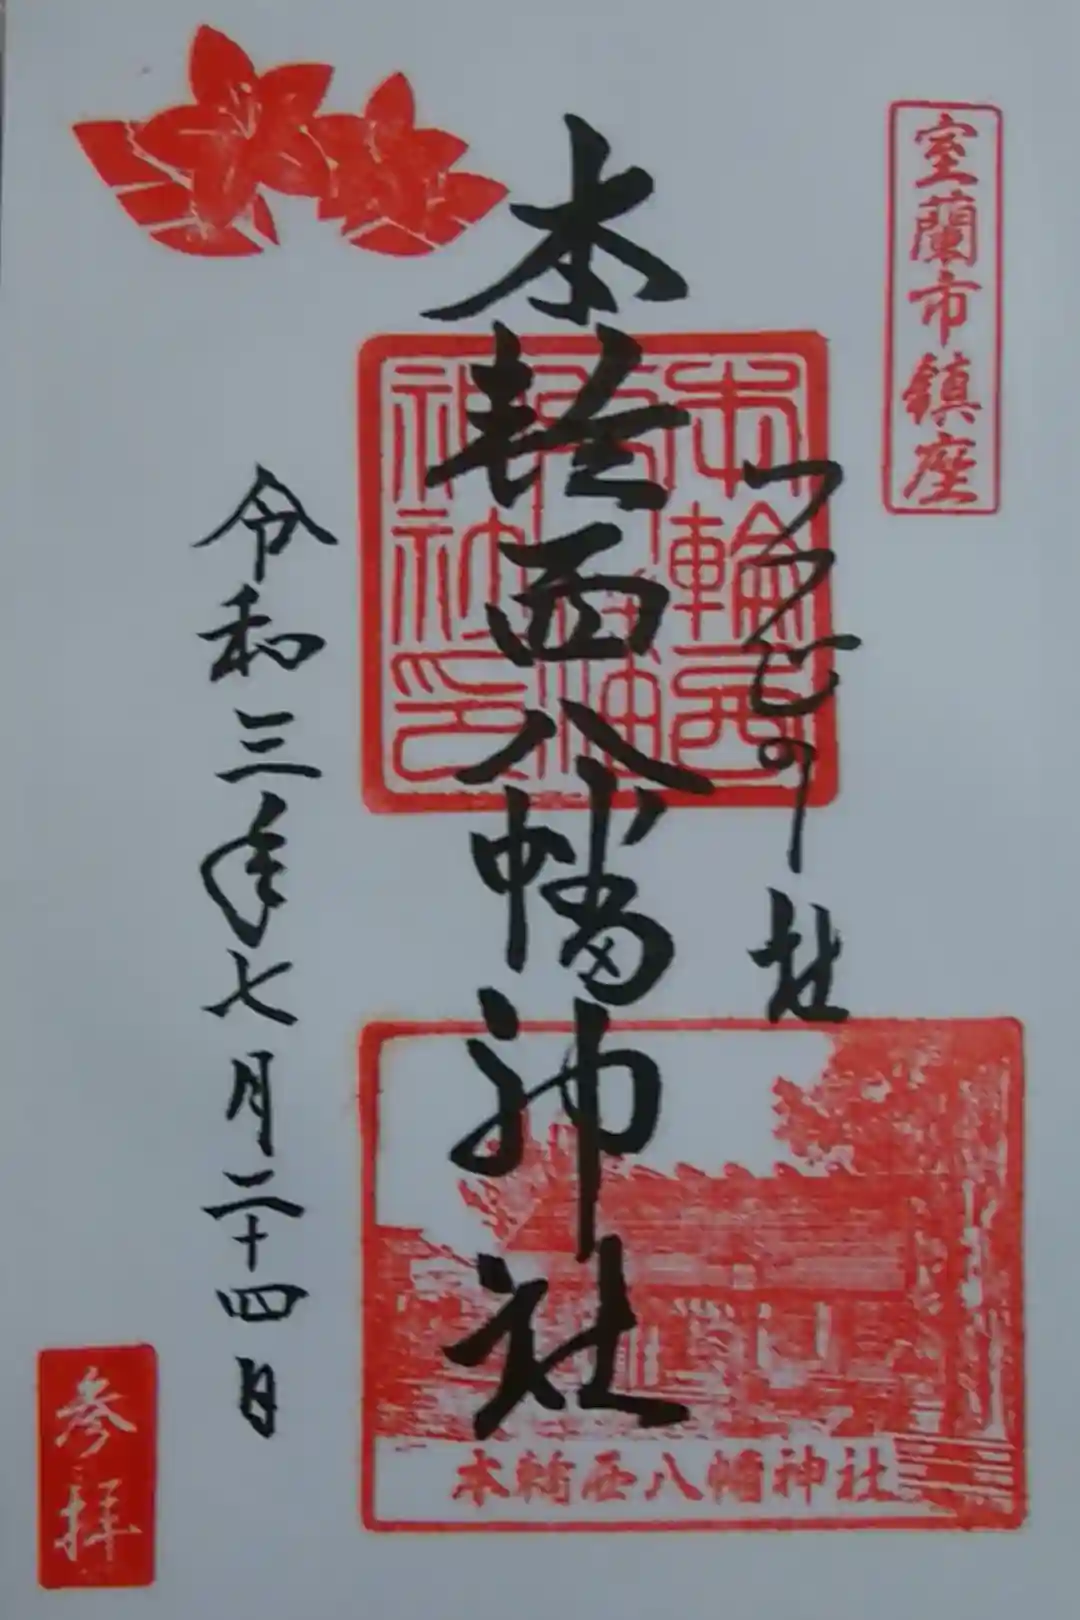 室蘭市鎮座
つつじの杜
本輪西八幡神社
本輪西
八幡
神社印
令和三年七月二十四日
参拝
本輪西八幡神社